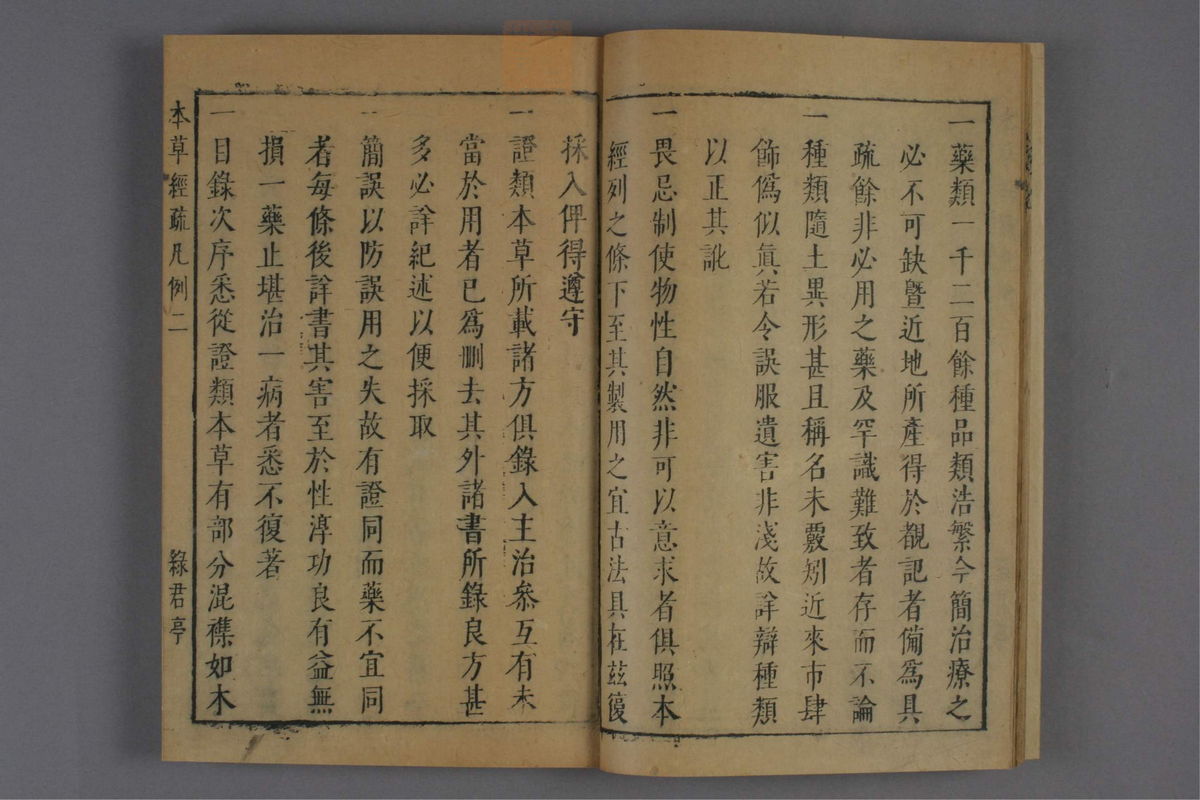 一藥類一千二百餘種品類浩繁今簡治療之
必不可缺曁近地所產得於覩記者備爲具
疏餘非必用之藥及罕識難致者存而不論
一種類隨土異形甚且稱名未覈矧近來市肆
飾僞似眞若令誤服遺害非淺故詳辯種類
以正其訛
一畏忌制使物性自然非可以意求者俱照本
經列之條下至其製用之宜古法具在茲復
採入俾得遵守
一證類本草所載諸方俱錄入主治叅互有未
當於用者已爲刪去其外諸書所錄良方甚
多必詳紀述以便採取
一簡誤以防誤用之失故有證同而藥不宜同
者每條後詳書其害至於性淳功良有益無
損一藥止堪治一病者悉不復著
一目錄次序悉從證類本草有部分混襍如木
本草經疏凡例二
綠君亭